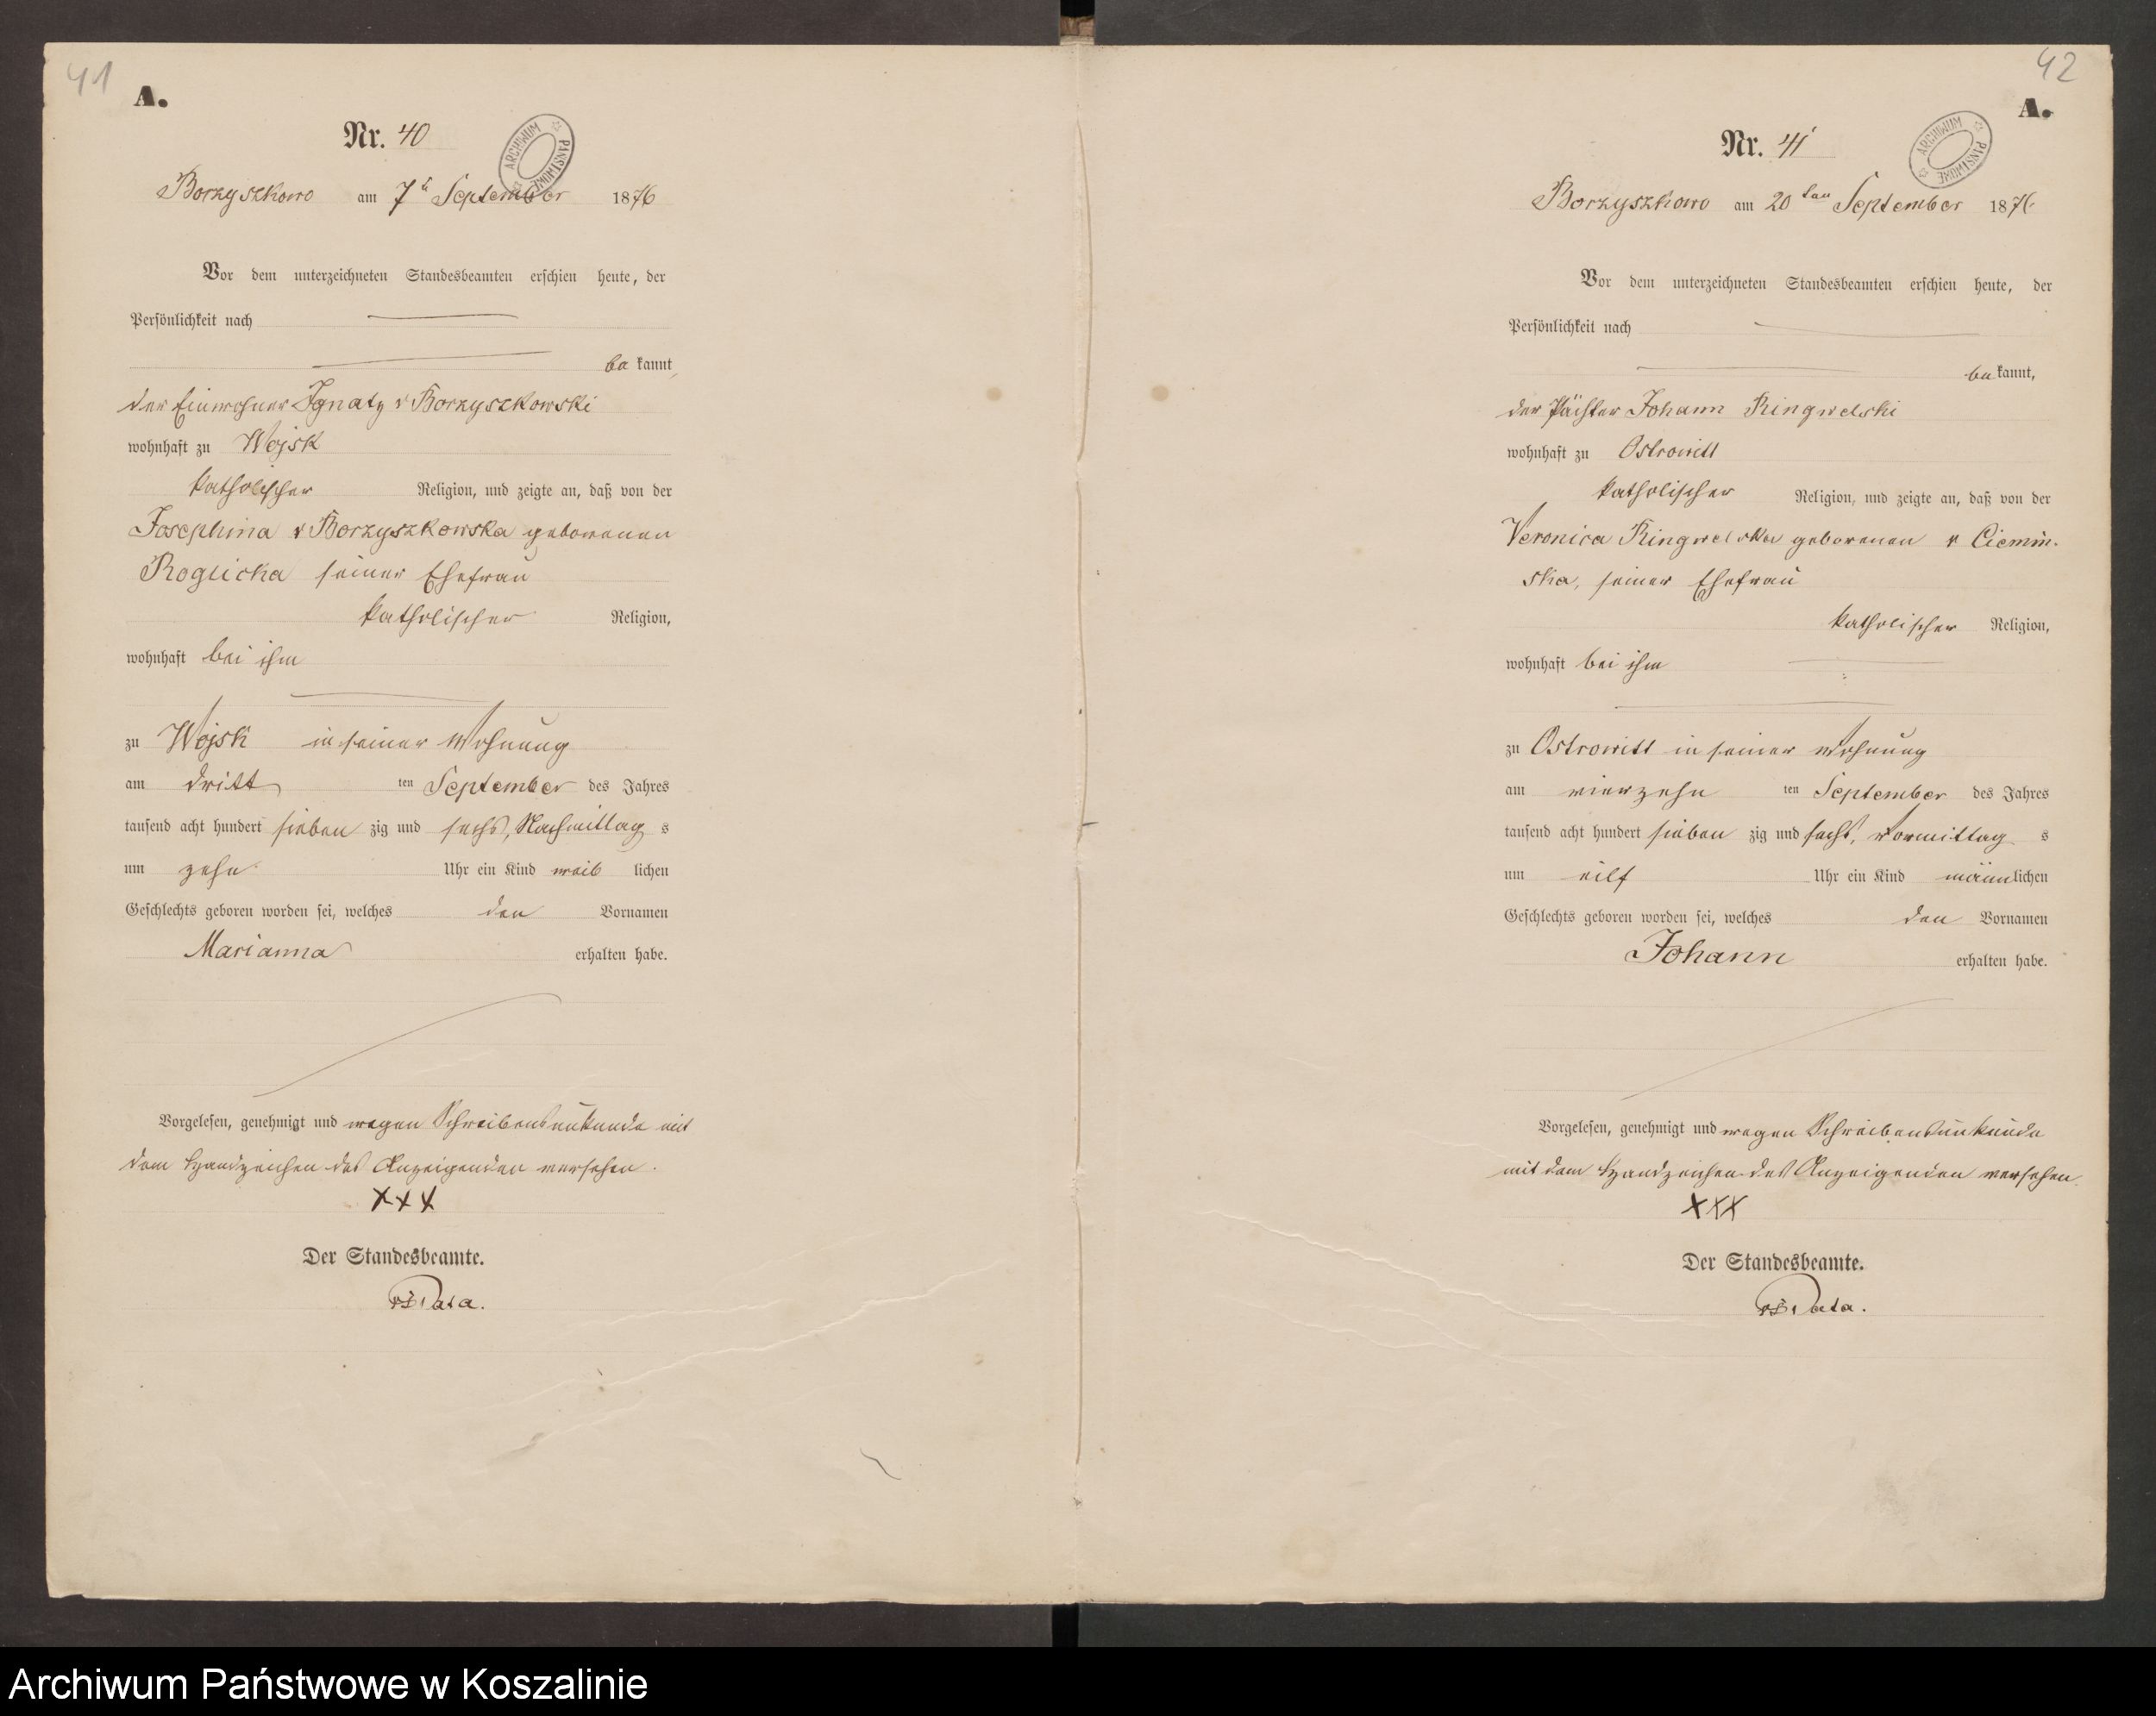 41
A.
Nr. 40
ARCHIWUM PAŃSTWOWE
Borzyszkowo am 7t September 1876
Vor dem unterzeichneten Standesbeamten erschien heute, der
Persönlichkeit nach
be kannt,
der Einwohner Ignatz v Borzyszkowski
wohnhaft zu Wojsk
katholischer Religion, und zeigte an, daß von der
Josephina v Borzyszkowska geborenen
seiner Ehefrau
katholischer Religion,
wohnhaft bei ihm
zu Wojsk in seiner Wohnung
am dritt ten September des Jahres
tausend acht hundert sieben zig und sechs, Nachmittag s
um zehn Uhr ein Kind weib lichen
Geschlechts geboren worden sei, welches den Vornamen
Marianna erhalten habe.
Vorgelesen, genehmigt und wegen Schreibensunkunde mit
dem Handzeichen des Anzeigenden versehen.
XXX
Der Standesbeamte.
42
A.
Nr. 41
ARCHIWUM PAŃSTWOWE
Borzyszkowo am 20ten September 1876
Vor dem unterzeichneten Standesbeamten erschien heute, der
Persönlichkeit nach
be kannt,
der Pächter Johann Ringwelski
wohnhaft zu Ostrowitt
katholischer Religion, und zeigte an, daß von der
Veronica Ringwelska geborenen v Ciemin-
ska, seiner Ehefrau
katholischer Religion,
wohnhaft bei ihm
zu Ostrowitt in seiner Wohnung
am vierzehn ten September des Jahres
tausend acht hundert sieben zig und sechs, Vormittag s
um eilf Uhr ein Kind männlichen
Geschlechts geboren worden sei, welches den Vornamen
Johann erhalten habe.
Vorgelesen, genehmigt und wegen Schreibensunkunde
mit dem Handzeichen des Anzeigenden versehen.
XXX
Der Standesbeamte.
Archiwum Państwowe w Koszalinie